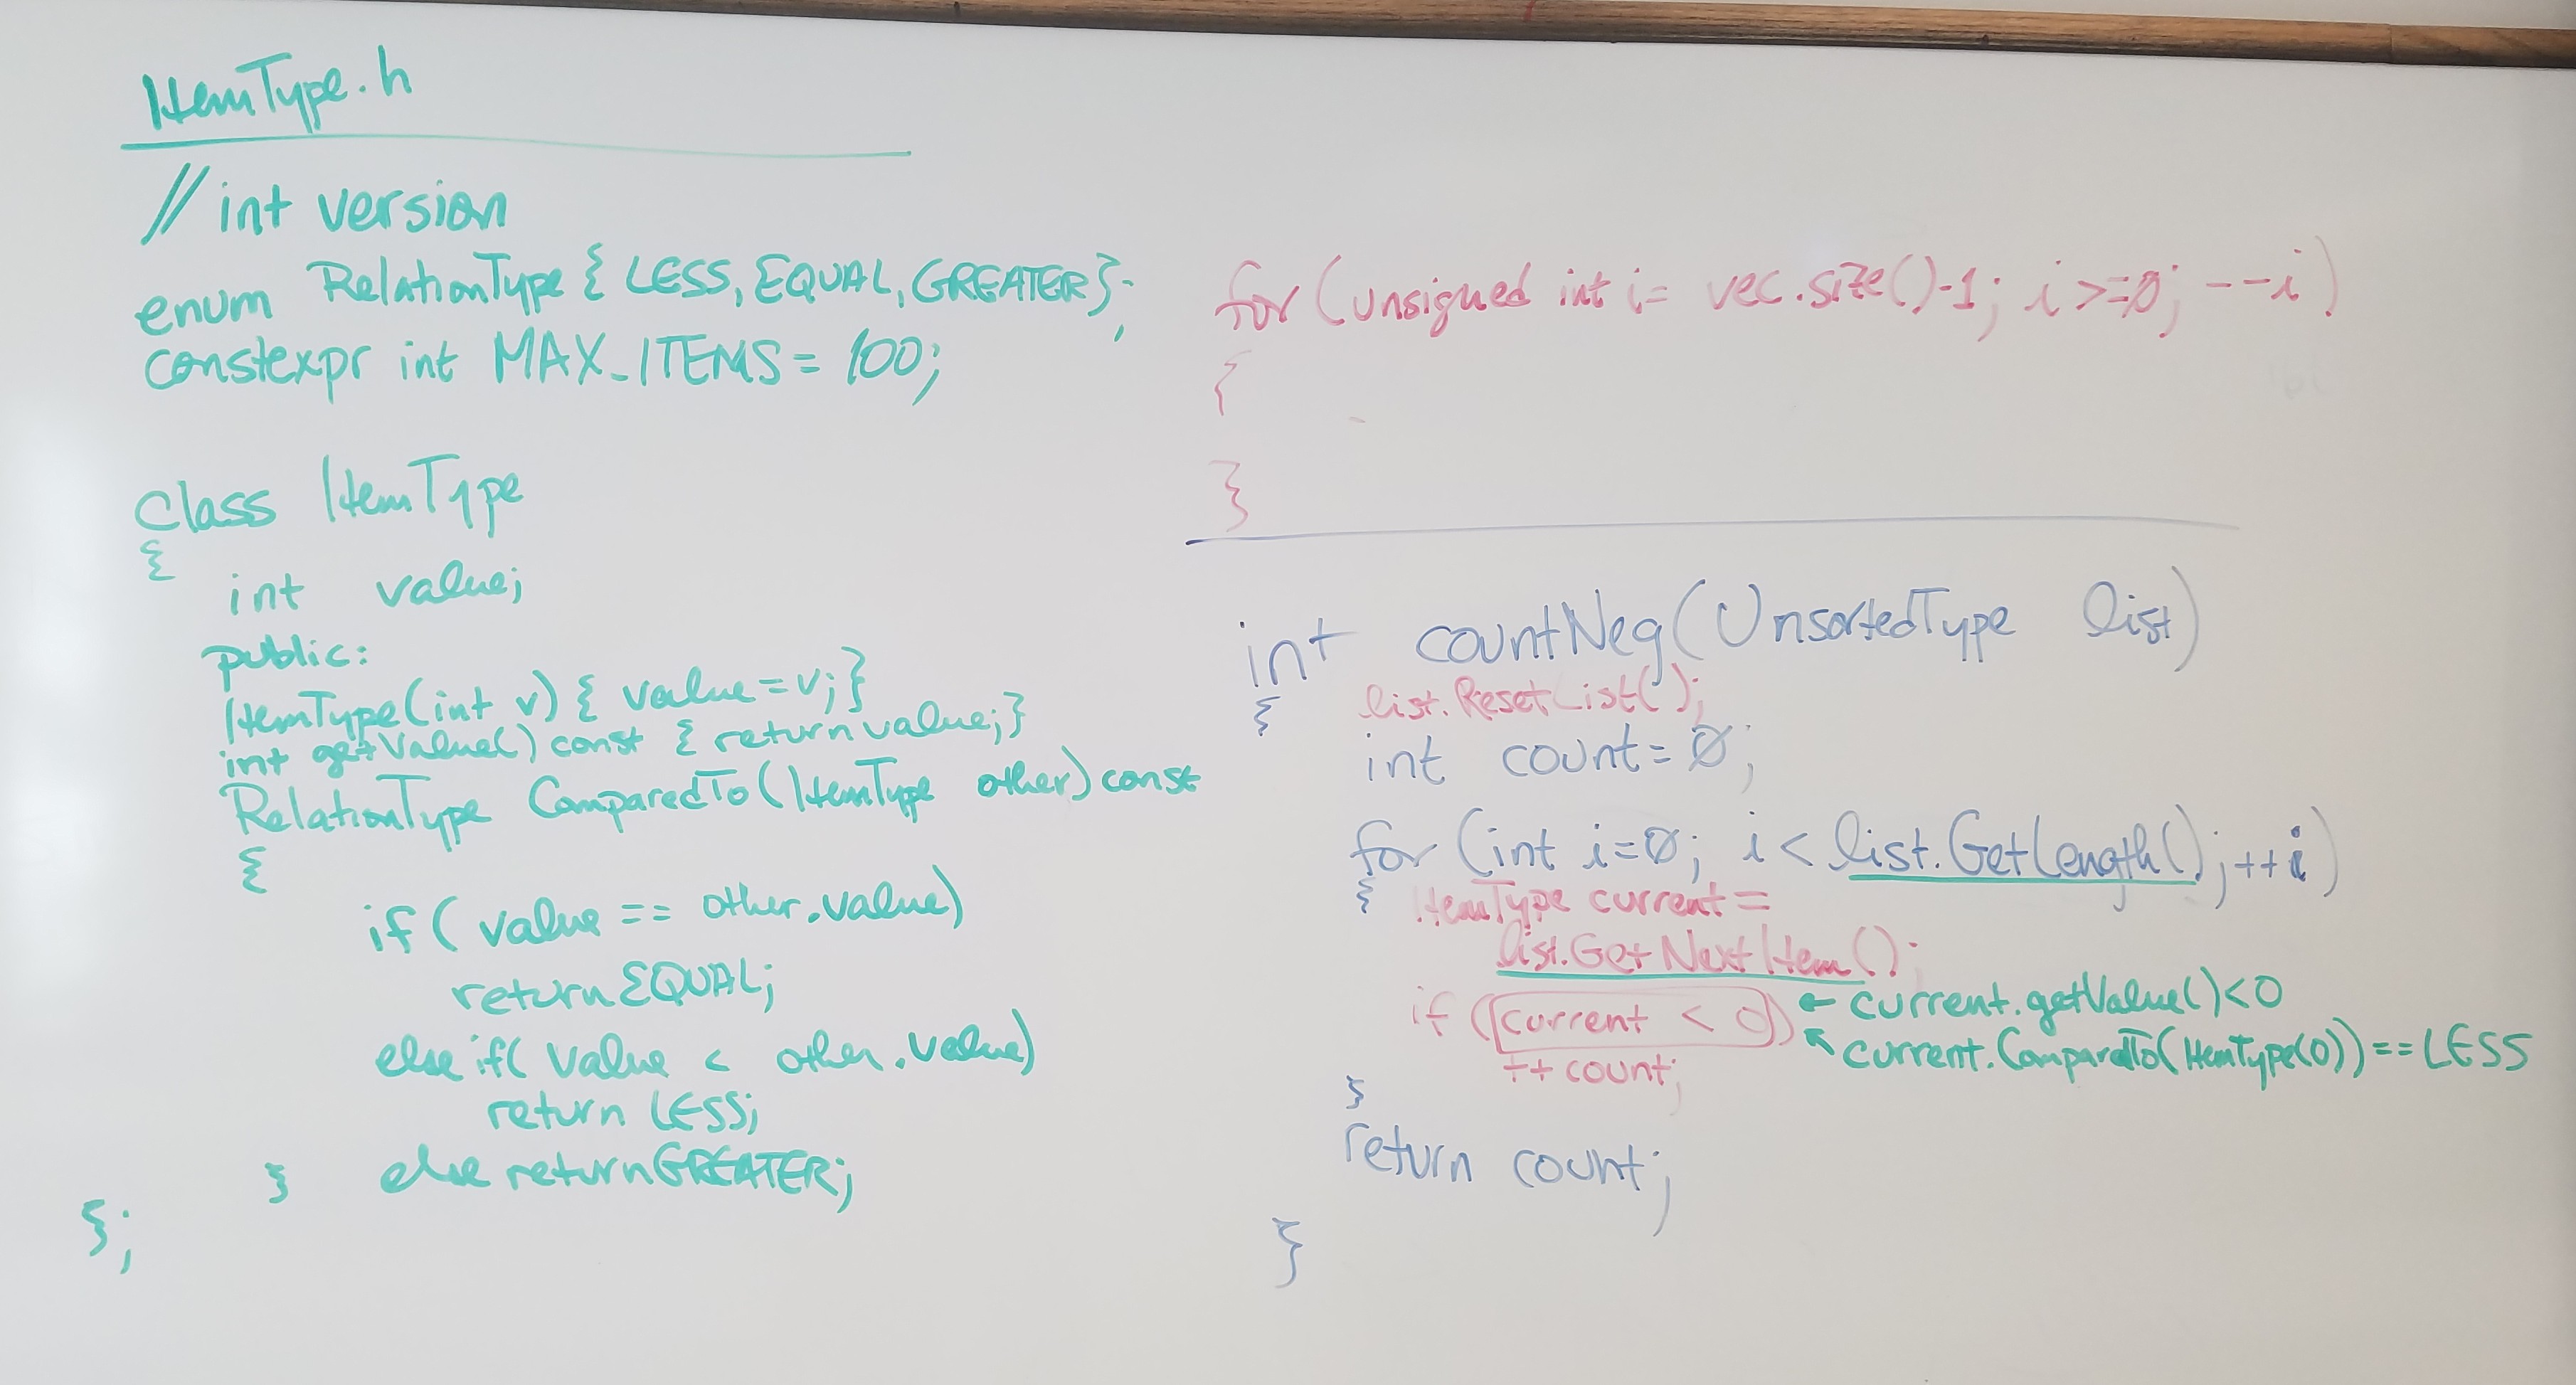 ItemType.h
// int version
enum RelationType { LESS, EQUAL, GREATER };
constexpr int MAX_ITEMS = 100;
class ItemType
{
int value;
public:
ItemType(int v) { value = v; }
int getValue() const { return value; }
RelationType ComparedTo(ItemType other) const
{
if ( value == other.value)
return EQUAL;
else if( value < other.value)
return LESS;
} else return GREATER;
};
for (unsigned int i= vec.size()-1; i >=0; --i)
{
}
int countNeg(UnsortedType list)
{ list.ResetList();
int count=0;
for (int i=0; i < list.GetLength(); ++i)
{ ItemType current =
list.GetNextItem();
if (current < 0) ← current.getValue()<0
↖ current.ComparedTo(ItemType(0))==LESS
++ count;
}
return count;
}